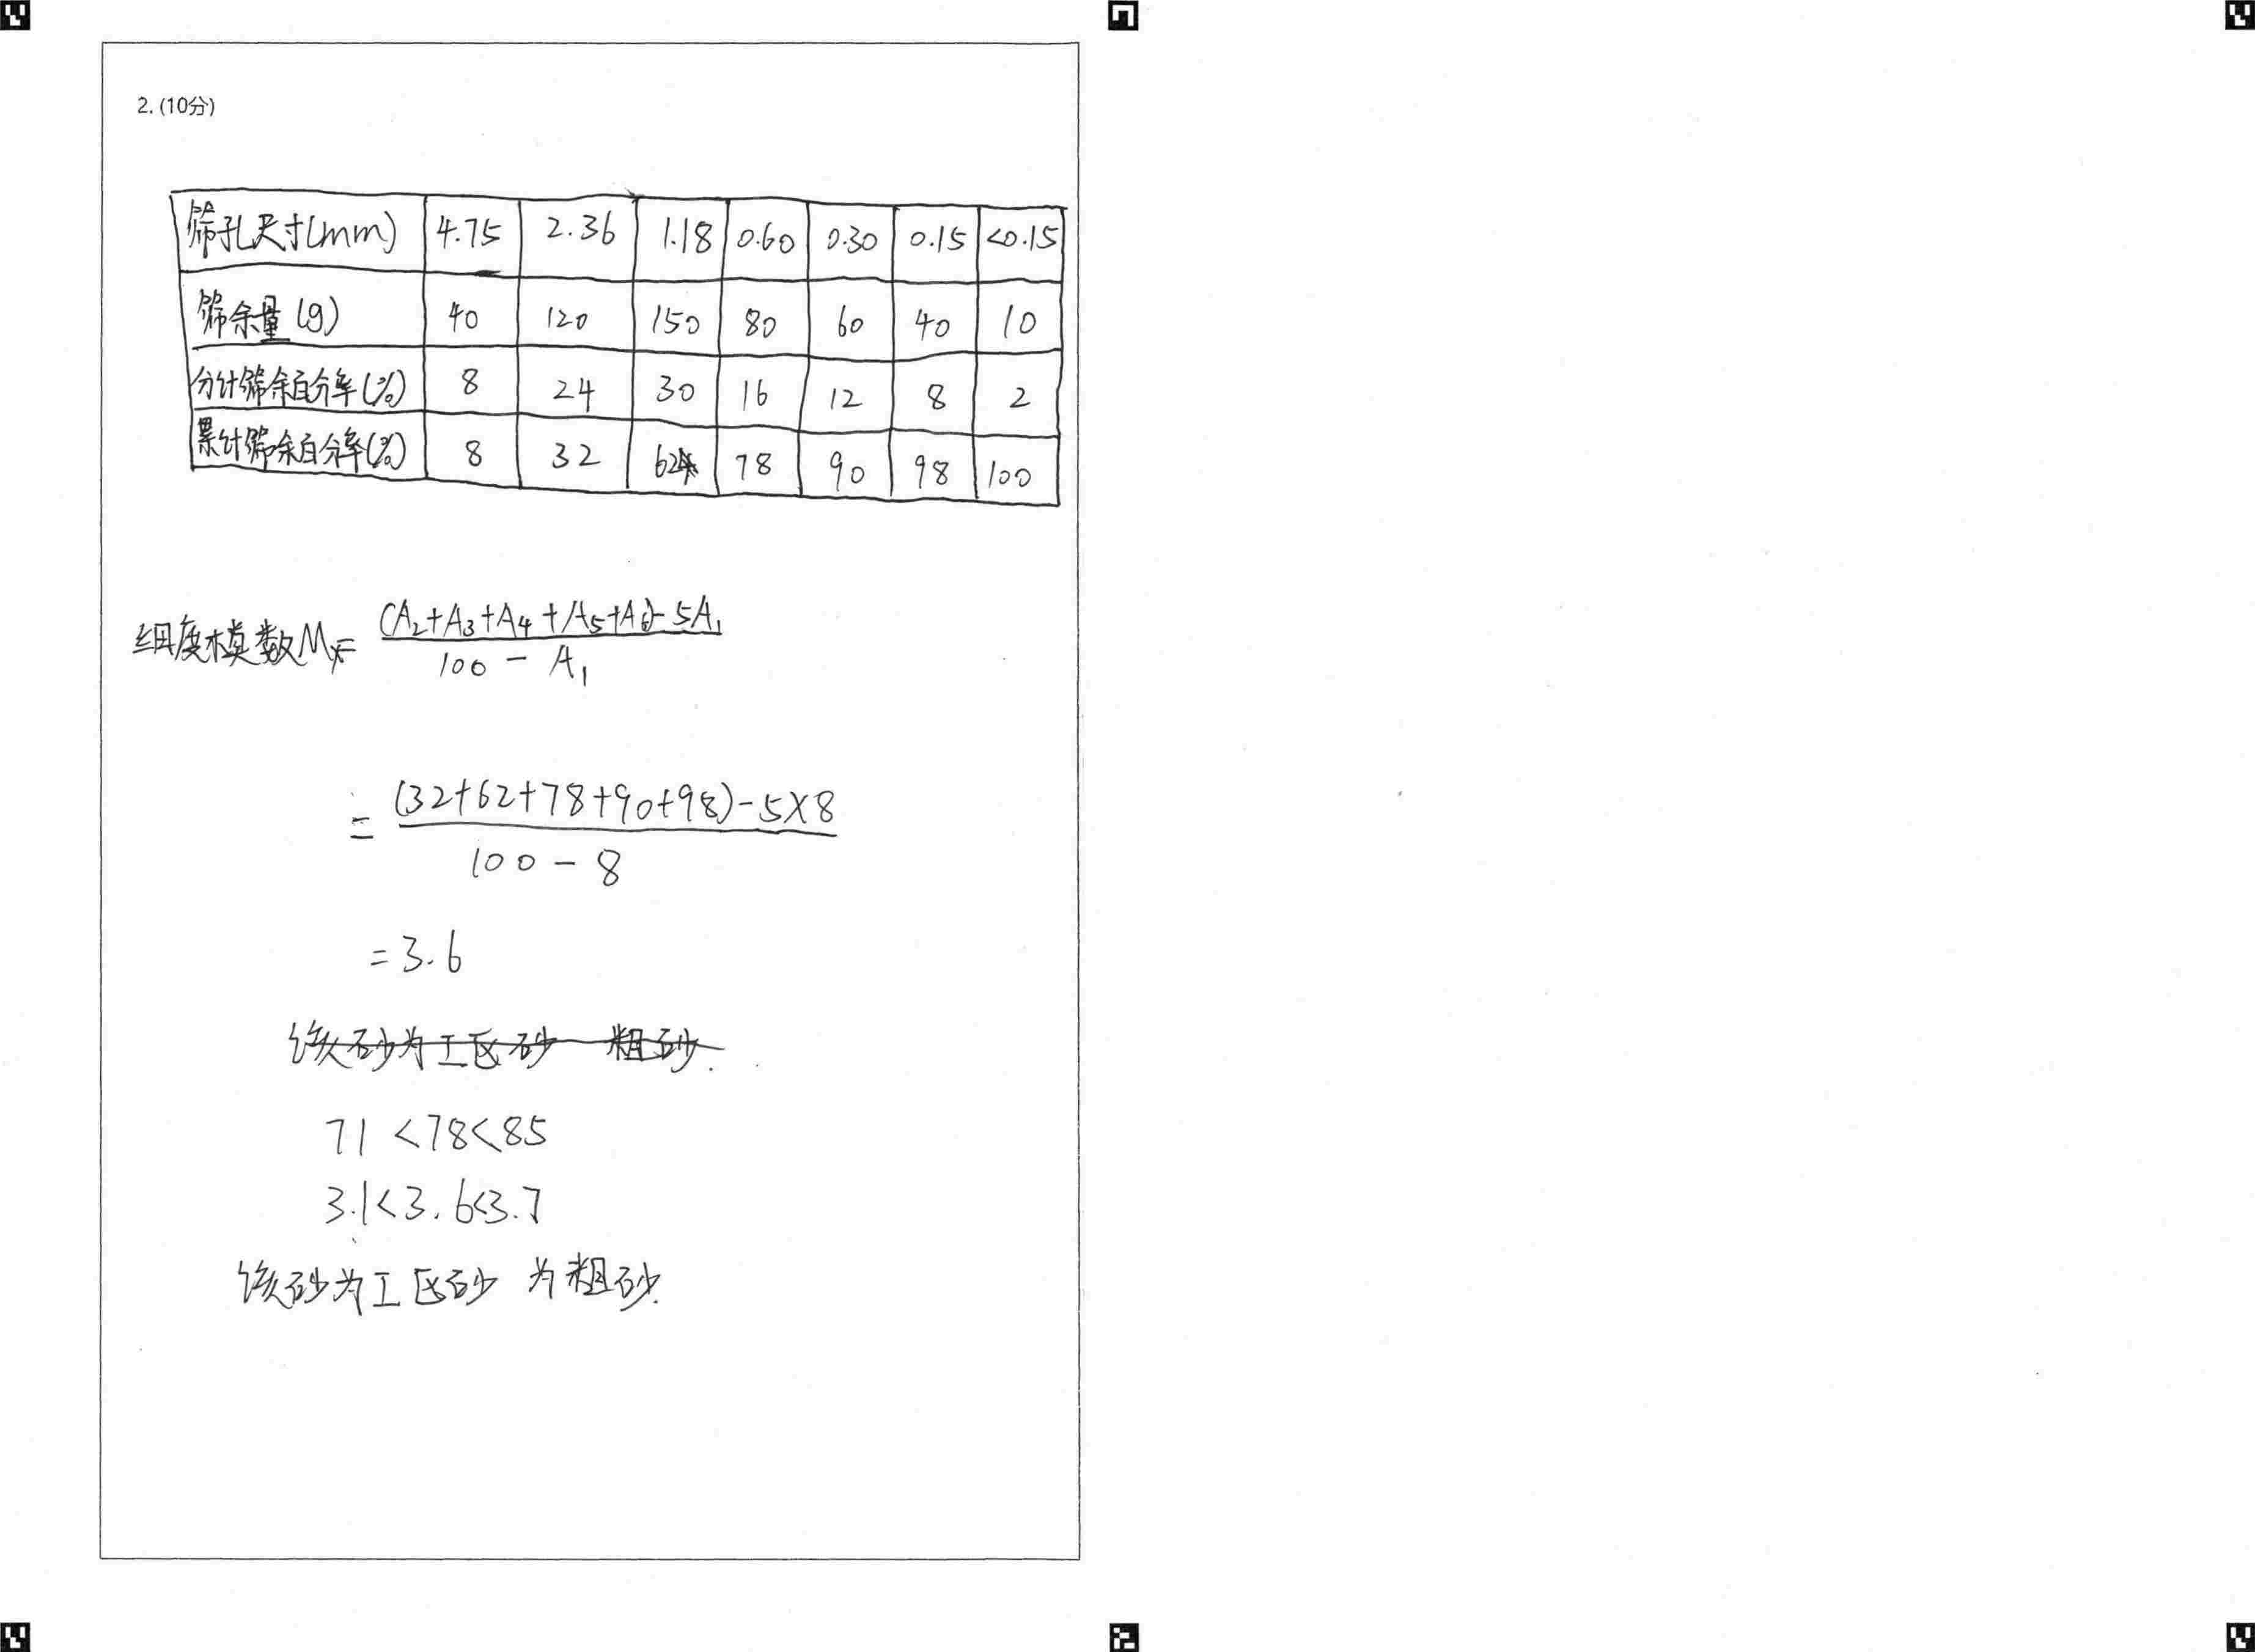 2. (10分)
筛孔尺寸(mm) 4.75 2.36 1.18 0.60 0.30 0.15 <0.15
筛余量(g) 40 120 150 80 60 40 10
分计筛余百分率(%) 8 24 30 16 12 8 2
累计筛余百分率(%) 8 32 62 78 90 98 100
细度模数Mx= (A₂+A₃+A₄+A₅+A₆)-5A₁
100 - A₁
= (32+62+78+90+98)-5×8
100 - 8
=3.6
该砂为I区砂 粗砂.
71<78<85
3.1<3.6<3.7
该砂为I区砂 为粗砂.